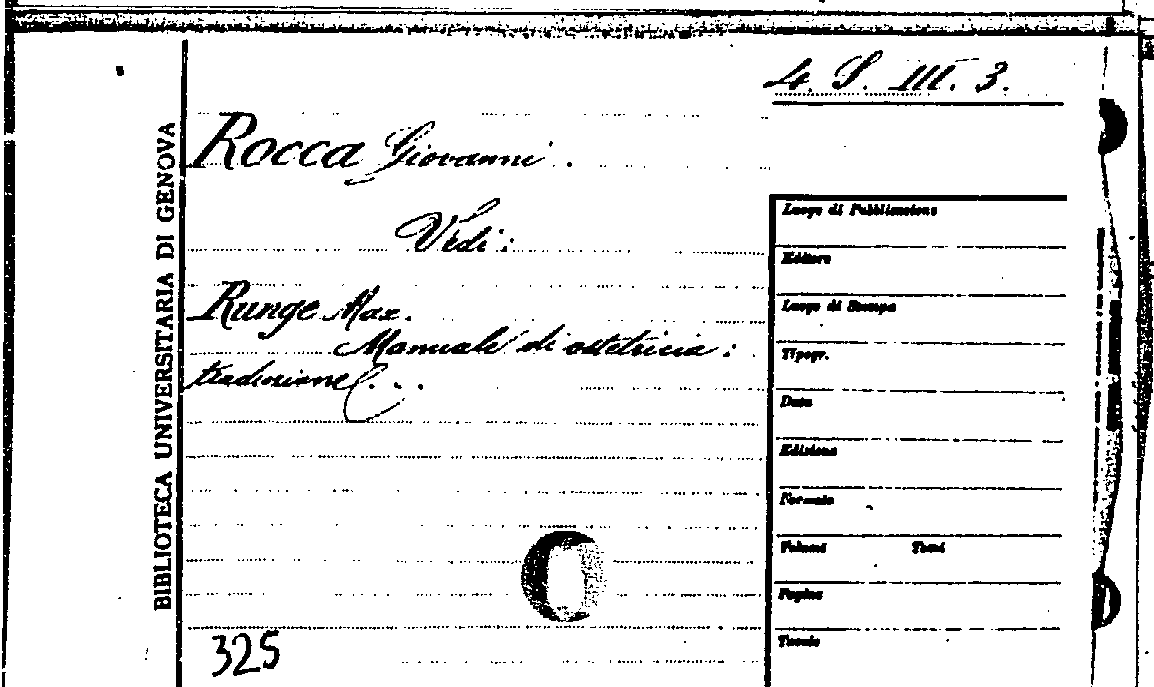 4. S. III. 3.
BIBLIOTECA UNIVERSITARIA DI GENOVA
Rocca Giovanni.
Vedi:
Runge Max.
Manuale di ostetricia:
traduzione ...
325
Luogo di Pubblicazione
Editore
Luogo di Stampa
Tipogr.
Data
Edizione
Formato
Volumi Tomi
Pagine
Tavole